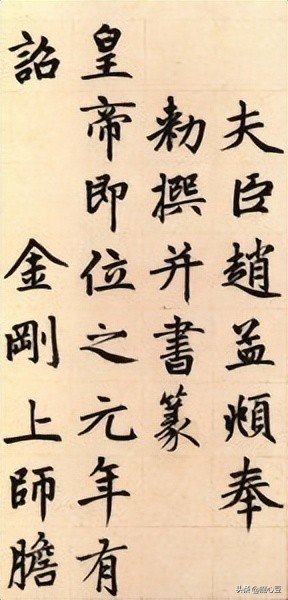 夫臣趙孟頫奉
勅撰并書篆
皇帝即位之元年有
詔金剛上師膽
头条@幽心豆